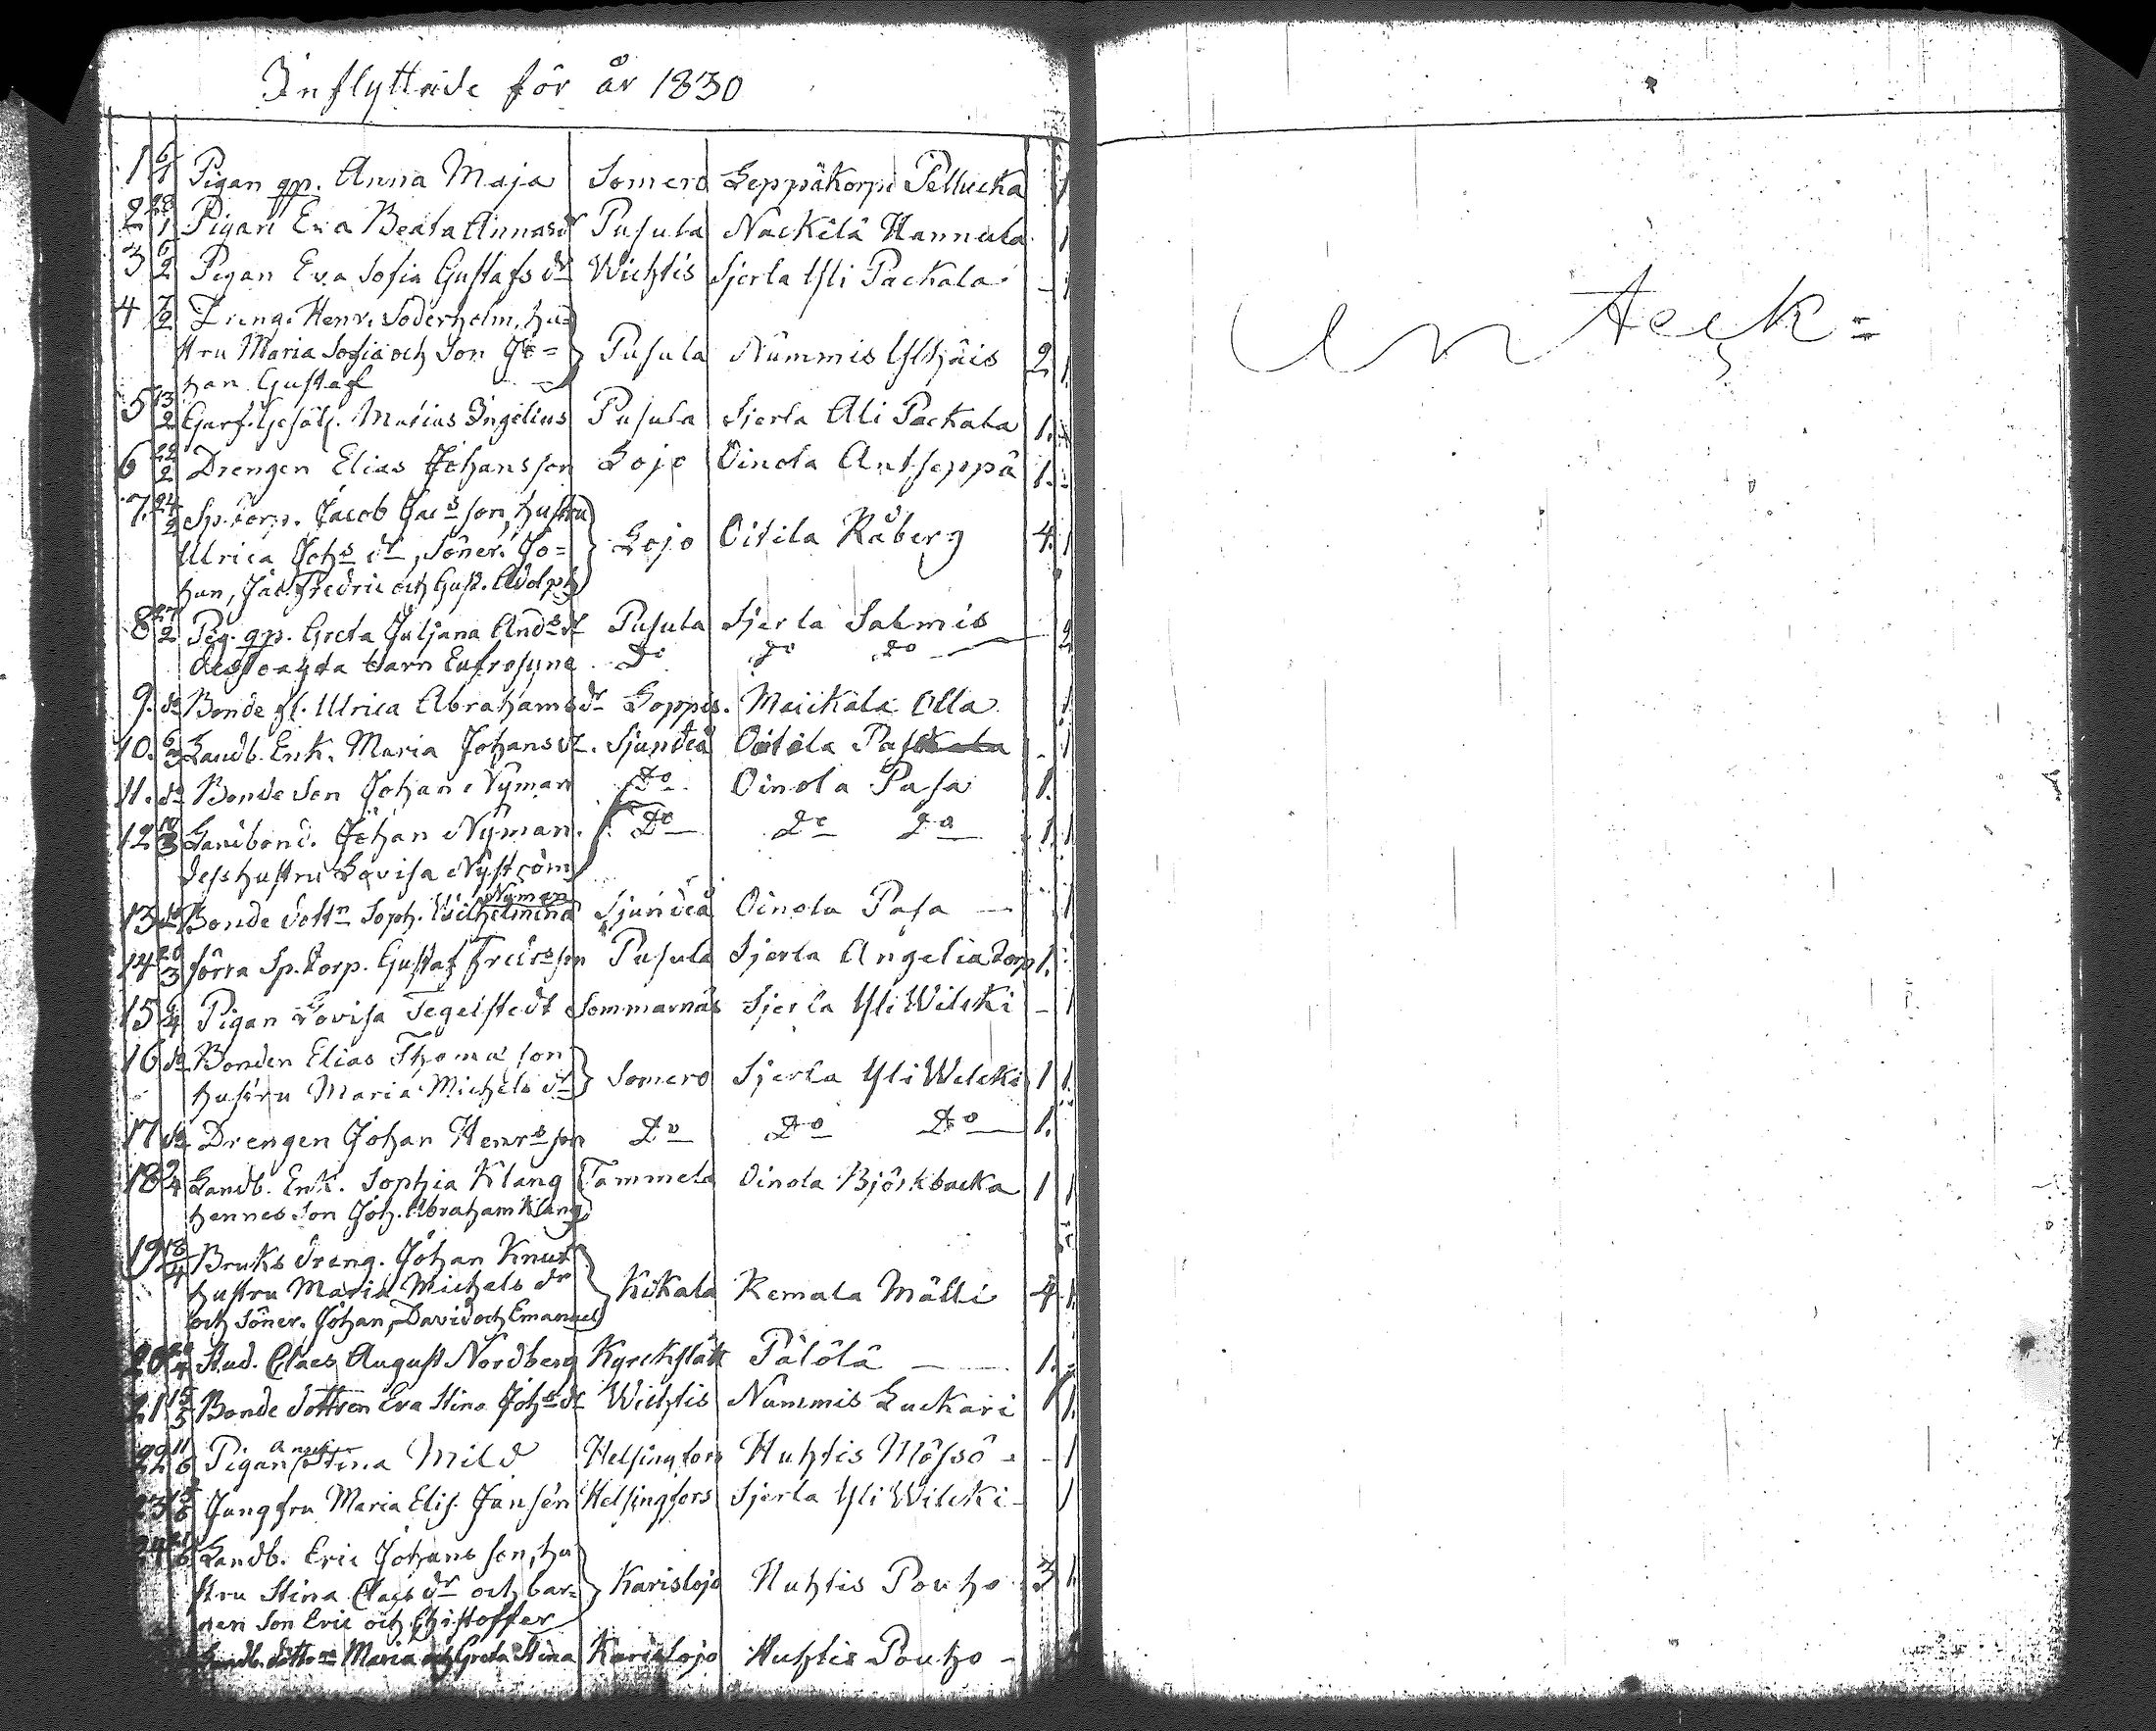 Inflyttade för år 1830
1 6/1 Pigan qp. Anna Maja Somero Leppäkorpi Pellucka 1
2 28/1 Pigan Eva Beata Annasdr Pusula Nackilä Hannula 1
3 6/2 Pigan Eva Sofia Gustafsdr Wichtis Sjerla Yli Packala - 1
4 7/2 Dreng. Henr. Söderholm, hu=
stru Maria Sofia och Son Jo= Pusula Nummis Ylhäis 2 1.
han Gustaf
5 13/2 Garf. Gesäll. Matias Ingelius Pusula Sjerla Ali Packala 1. -
6 22/2 Drengen Elias Johansson Lojo Oinola Antseppä 1. -
7. 24/2 Sp. torp. Jacob Jacs son, hustru
Ulrica Johs dr, Söner. Jo= Lojo Oitila Råberg 4. 1
han, Jac. Fredric och Gust. Adolph
8 27/2 Pig. qp. Greta Juljana Ands dr Pusula Sjerla Salmis 2
dess oägta barn Eufrosyne Do Do Do
9. do Bonde fl. Ulrica Abrahamsdr Loppis. Maickala Olla 1.
10. 6/3 Landb. Enk. Maria Johansdr. Sjundeå Oitila - 1
11. do Bonde Son Johan Nyman Do Oinola Pasa 1.
12 10/3 Landbond. Johan Nyman. Do Do Do 1. 1
dess hustru Lovisa Nyström
Nyman
13 do Bonde dottn Soph. Wilhelmina Sjundeå Oinola Pasa - 1
14 20/3 förra Sp. torp. Gustaf Fredrsson Pusula Sjerla Angelia torp 1. -
15 2/4 Pigan Lovisa Tegelstedt Sommarnäs Sjerla Yli Wilcki - 1
16 do Bonden Elias Thomasson
hustru Maria Michelsdr Somero Sjerla Yli Wilcki 1 1.
17 do Drengen Johan Henrsson Do Do Do 1.
18 9/4 Landb. Enk. Sophia Klang Tammela Oinola Björkbacka 1 1
hennes Son Joh. Abraham Klang
19 18/4 Bruks dreng. Johan Knut
hustru Maria Michels dr Kikala Remala Mälli 4 1.
och Söner. Johan, David och Emanuel
20 20/4 Stud. Claes August Nordberg Kyrckslätt Pälölä - 1. -
21 15/5 Bonde dottren Eva Stina Johs dr Wichtis Nummis Luckari 1.
22 11/6 Pigan Stina Mild Helsingfors Huhtis Mössö - - 1
23 Jungfru Maria Elis. Jansén Helsingfors Sjerla Yli Wilcki - 1
24 Landb. Eric Johansson, hu
stru Stina Claes dr och bar= Karislojo Huhtis Pouho 3 1.
nen Son Eric och Christoffer
Landb. döttrar Maria och Greta Stina Karislojo Huhtis Pouho -
Anteck=